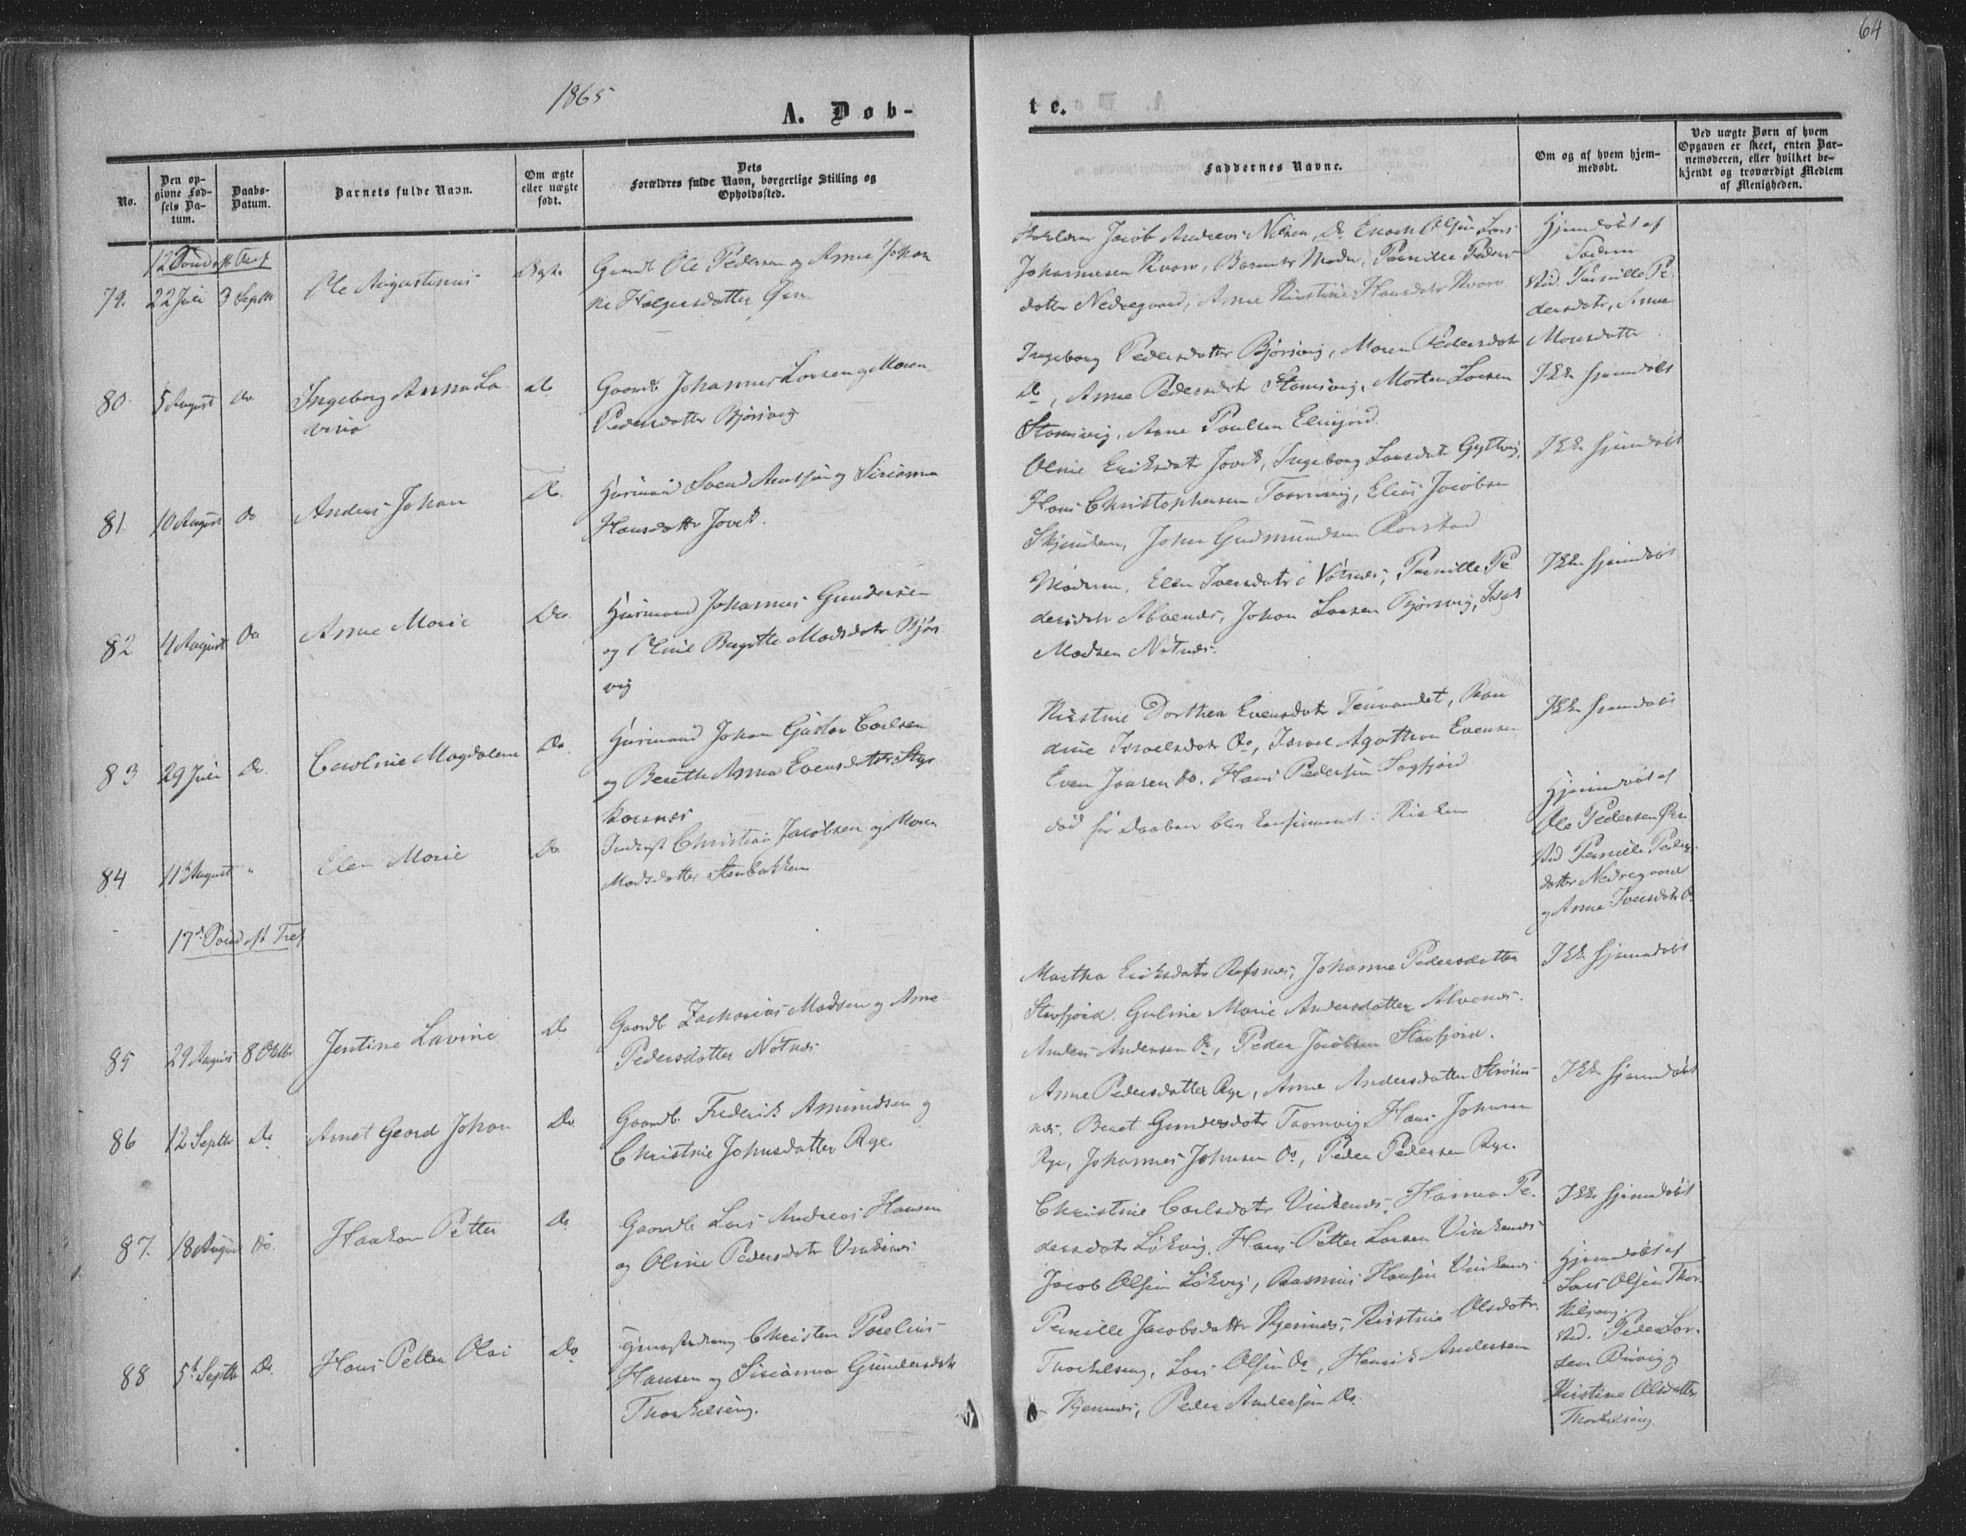 64
1865
A. Døb-
te.
No.
Den op-
givne Fød-
sels Da-
tum.
Daabs-
Datum.
Barnets fulde Navn.
Om ægte
eller uægte
født.
Dets
Forældres fulde Navn, borgerlige Stilling og
Opholdssted.
Faddernes Navne.
Om og af hvem hjem-
medøbt.
Ved uægte Børn af hvem
Opgaven er skeet, enten Bar-
nemoderen, eller hvilket be-
kjendt og troværdigt Medlem
af Menigheden.
79. 22 Juli 3 Septbr
Ole Augustinus
Gaardb Ole Pedersen og Anne Johan
ne Holgersdatter Øren
Jacob Andreas Nilsen, Do Enoch Olsen, Lars
Johannesen Kvarv, Barnets Moder, Pernille Peders-
datter Nedregaard, Anne Kirstine Hansdatr Kvarv
Hjemdøbt af
Faderen
Stid. Pernille Pe
dersdatr, Anne
Monsdatter
80. 5 August do
Ingeborg Anna La
vina
do
Gaardb Johannes Larsen og Maren
Pedersdatter Bjørsvig
Ingeborg Pedersdatter Bjørsvig, Maren Pedersdat
Do, Anne Pedersdatr Stamsvig, Morten Larsen
Stamsvig, Arne Paulsen Elvefjord
Ikke hjemdøbt
81 10 August do
Anders Johan
Do.
Huusmand Svend Andersen og Sirianna
Hansdatter Jovik.
Oline Eriksdatr Jovik, Ingeborg Larsdatr Gyltvig,
Hans Christophersen Tornvig, Elias Jacobsen
Skjendsen, John Gudmundsen Rørstad
Ikke hjemdøbt
82 4 August Do
Anne Marie
Do.
Huusmand Johannes Gundersen
og Oline Birgitte Madsdatr Bjørs
vig
Moderen, Elen Iversdatr Nøtnæs, Pernille Pe
dersdatr Alvenæs, Johan Larsen Bjørsvig,
Madsen Nøtnæs.
Ikke hjemdøbt
83 29 Juli Do
Caroline Magdalene
Do
Huusmand Johan Gustav Carlsen
og Bereth Anna Evensdatter Styr
kesnæs
Kirstine Dorthea Evensdatr Tennvandet, Ran
dine Israelsdatr Do, Israel Agathon Evensen
Even Jonsen do. Hans Pedersen Sagfjord
Ikke hjemdøbt
84 11t August "
Elen Marie
Do
Inderst Christian Jacobsen og Maren
Madsdatter Stenbakken
død før Daaben blev confirmeret i Kirken
Hjemdøbt af
Ole Pedersen Øren
Stid Pernille Peders
datter Nedregaard
og Anne Iversdatr Do
17d Sønd eft Tref
85 29 August 8 Oktbr
Jentine Lavine
Do
Gaardb Zacharias Madsen og Ane
Pedersdatter Nøtnæs
Martha Eriksdatr Røsnæs, Johanna Pedersdatter
Stavfjord, Guline Marie Andersdatter Alvenæs.
Anders Andersen Do, Peder Jacobsen Stavfjord.
Ikke hjemdøbt
86 12 Septbr Do.
Arnet Georg Johan
Do
Gaardb Frederik Amundsen og
Christine Johnsdatter Rye.
Anne Pedersdatter Rye, Anne Andersdatter Strøms-
næs, Beret Gundersdatr Tornvig, Hans Johnsen
Rye, Johannes Johnsen Do, Peder Pedersen Rye.
Ikke hjemdøbt
87. 18 August Do.
Haakon Petter
Do.
Gaardb Lars Andreas Hansen
og Oline Pedersdatr Vinkenæs
Christine Carlsdatr Vinkenæs, Hanna Pe-
dersdatr Løkvig, Hans Petter Larsen Vinkenæs
Jacob Olsen Løkvig, Rasmus Hansen Vinkenæs
Ikke hjemdøbt
88 5t Septbr Do.
Hans Petter Olai
Do
Christen Pocelius
Hansen og Sirianna Gundersdatr
Thorkelseng.
Pernille Jacobsdatter Kjerrnæs, Kirstine Olsdatr.
Thorkelseng, Lars Olsen Do, Henrik Andersen
Kjerrnæs, Peder Andersen Do.
Hjemdøbt af
Lars Olsen Thor-
kelseng.
Stid. Peder Lar-
sen Buvig og
Kirstine Olsdatter
Thorkelseng